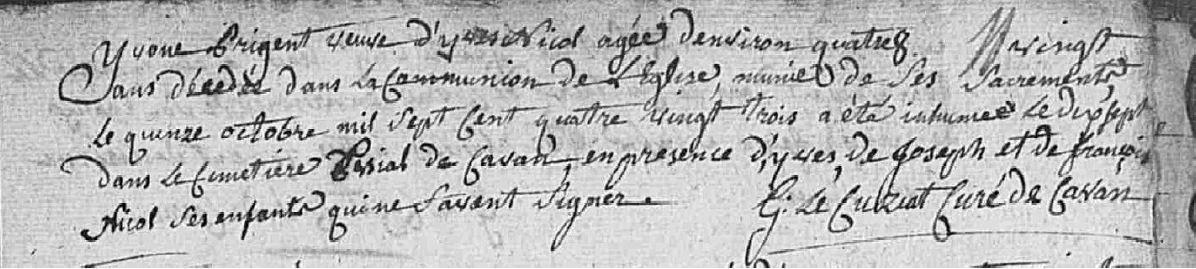 Yvone Prigent veuve d'yves Nicol agée d'environ quatre vingt
ans décédée dans la Communion de L'Eglise, muniée de Ses Sacrements
le quinze octobre mil Sept Cent quatre vingt trois a été inhumée Le dixsept
dans Le Cimetiére de Cavan, en presence d'yves de Joseph et de françois
Nicol Ses enfants qui ne Savent Signer. G: Le Cuziat Curé de Cavan